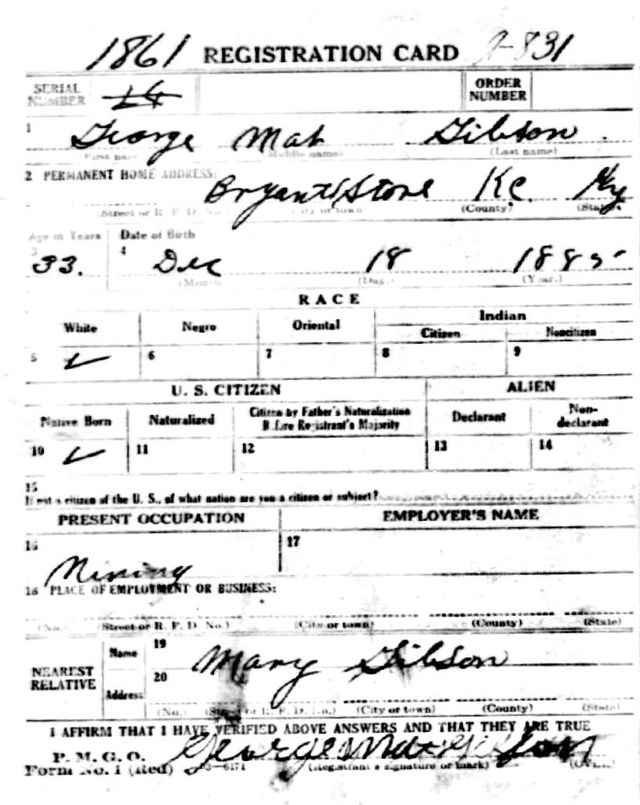 1861 REGISTRATION CARD 2-831
SERIAL NUMBER 16 ORDER NUMBER
1 George Mat Gibson.
(First name) (Middle name) (Last name)
2 PERMANENT HOME ADDRESS:
Bryants Store Kc. Ky
(Street or R. F. D. No.) (City or town) (County) (State)
Age in Years Date of Birth
3 4
33. Dec 18 1885
(Month) (Day.) (Year.)
RACE
White Negro Oriental Indian
Citizen Noncitizen
5 ✓ 6 7 8 9
U. S. CITIZEN ALIEN
Native Born Naturalized Citizen by Father's Naturalization Before Registrant's Majority Declarant Non-declarant
10 ✓ 11 12 13 14
15
If not a citizen of the U. S., of what nation are you a citizen or subject?
PRESENT OCCUPATION EMPLOYER'S NAME
16 17
Mining
18 PLACE OF EMPLOYMENT OR BUSINESS:
(No.) (Street or R. F. D. No.) (City or town) (County) (State)
NEAREST RELATIVE Name 19 Mary Gibson
Address 20
(No.) (Street or R. F. D. No.) (City or town) (County) (State)
I AFFIRM THAT I HAVE VERIFIED ABOVE ANSWERS AND THAT THEY ARE TRUE
P. M. G. O.
Form No. 1 (Red) 3-6171 George Mat Gibson
(Registrant's signature or mark) (OVER.)